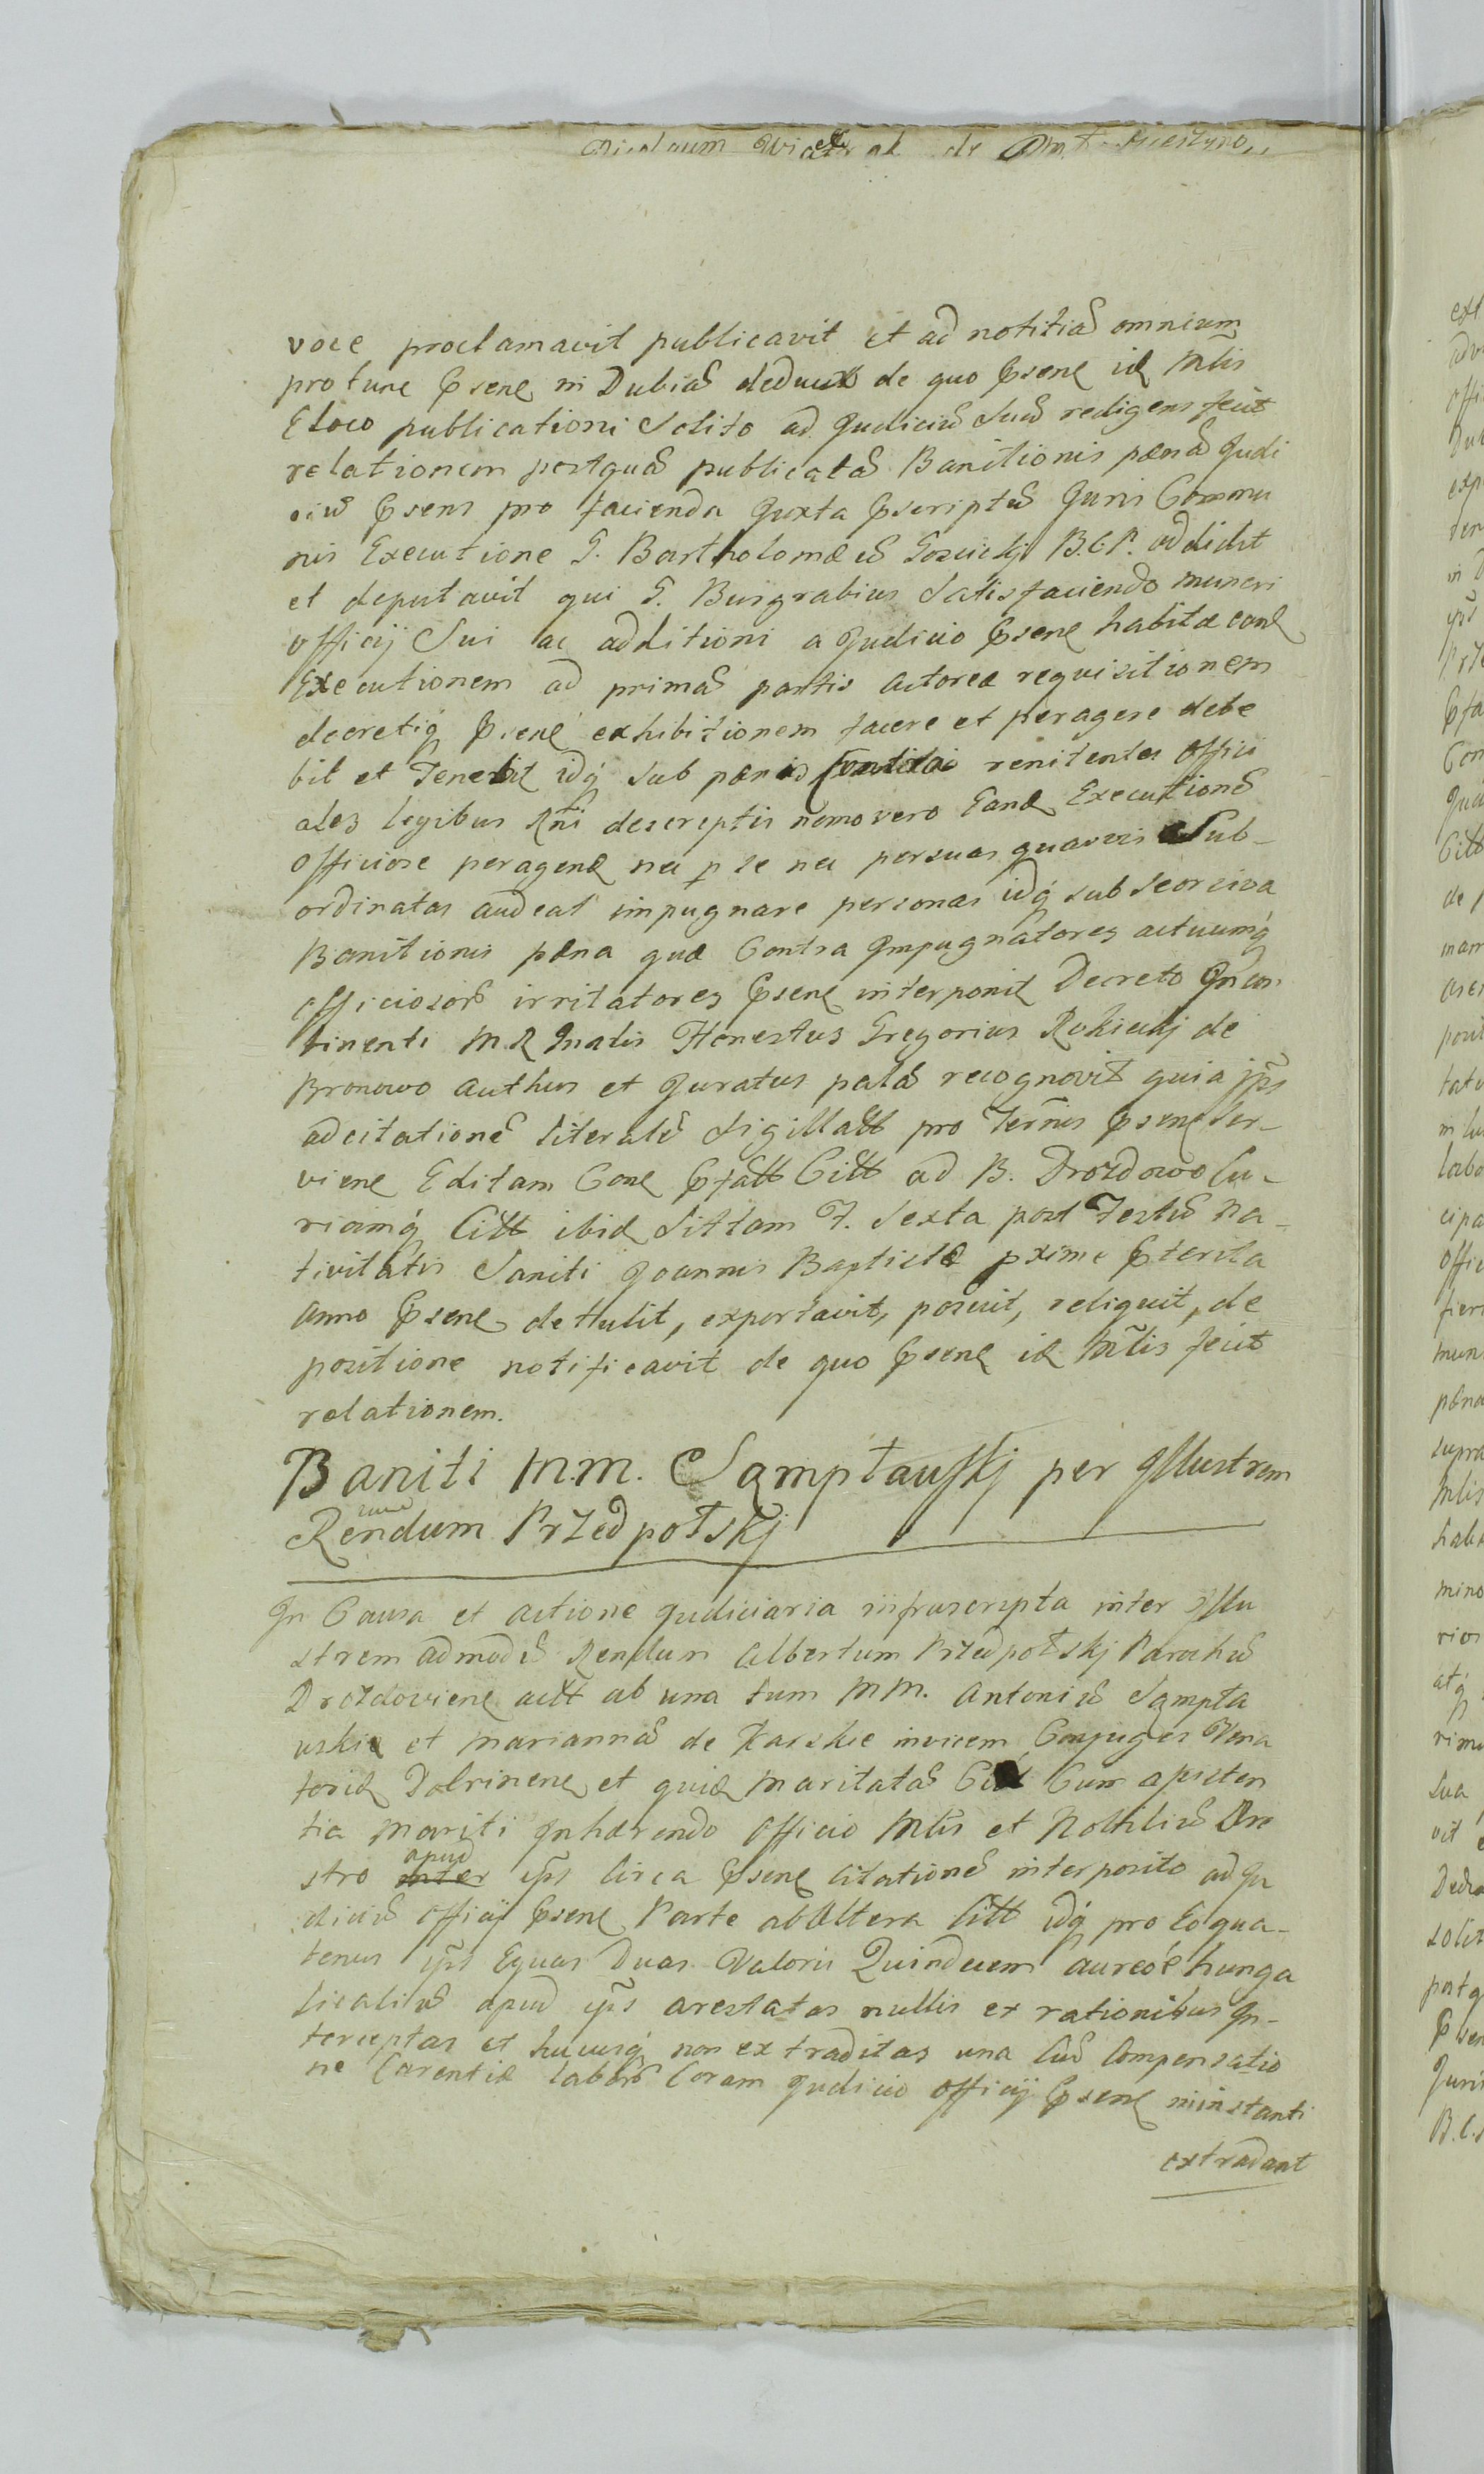 voce proclamavit publicavit et ad notitiã omnium
protunc Psene in Dubiã deduxit de quo Psene id Mtlis
E loco publicationi Solito ad Judiciũ Suũ redigens fecit
relationem postquã publicatã Banitionis pœnã Judi
ciũ Psens pro facienda Juxta Pscriptũ Juris Commu
nis Executione G. Bartholomæũ Goscickj B.C.P. addidit
et deputavit qui G. Burgrabius Satisfaciendo muneri
officij Sui ac additioni a Judicio Psene habitæ eane
Executionem ad primã partis actoreæ requisitionem
decretiq Psene exhibitionem facere et peragere debe
bit et Tenebit idq sub pœnis renitentes offici
ales legibus Rni descreptis nemo vero Eand Executionẽ
officiose peragend nec p se nec persuas quasvis Sub-
ordinatas audeat impugnare personas idq sub seorsiva
Banitionis pœna quæ Contra Impugnatores actuumq
officiosorũ irritatores Psene interponit Decreto Incon
tinenti M R Gnalis Honestus Gregorius Rokickj de
Bronowo authus et Juratus palã recognovit quia ips
ad citationẽ literalẽ Sigillatt pro Ternis Psene ser-
viene Editam Cone Pfatt Citt ad B. Drozdowo Cu-
riamq Citt ibid Sittam F. Sexta post Festũ Na-
tivitatis Sancti Joannis Baptistæ pxime Pterita
anno Psene dettulit, exportavit, posuit, reliquit, de
positione notificavit de quo Psene id Mtlis fecit
relationem.
Baniti M.M. Sąmptauskj per Jllustrem
Rendum Przedpołskj
Jn Causa et actione Judiciaria infrascripta inter Jllu
strem admodũ Rendum Albertum Przedpołskj Parochũ
Drozdoviene actt ab una tum MM. Antoniũ Sąmpta
uskie et Mariannã de Karskie invicem Conjuges Vena
torid Dobrinene et quid Maritatã Cum assisten
tia Mariti Jnhærendo Officio Mtlis et Nobiliũ Are
stro apud inter ips Circa Psene Citationẽ interposito ad Ju
diciũ Officij Psene Parte ab Altera Citt idq pro Eo qua-
tenus ips Equas Duas Valoris Quindecem aureoe hunga
ricaliũ apud ips arestatas nullis ex rationibus Jn-
terceptas et hucusq non extraditas una Cũ Compensatio
ne Carentiæ laborũ Coram Judicio Officij Psene in instanti
extradant